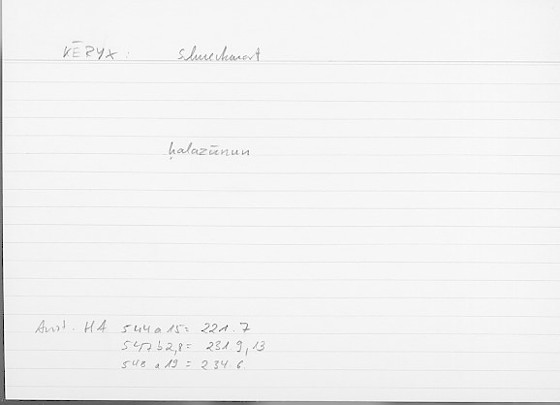 KĒRYX: Schneckenart
ḥalazūnun
Arist. HA 544 a 15 = 221.7
547 b 2,8 = 231 9, 13
548 a 19 = 234 6